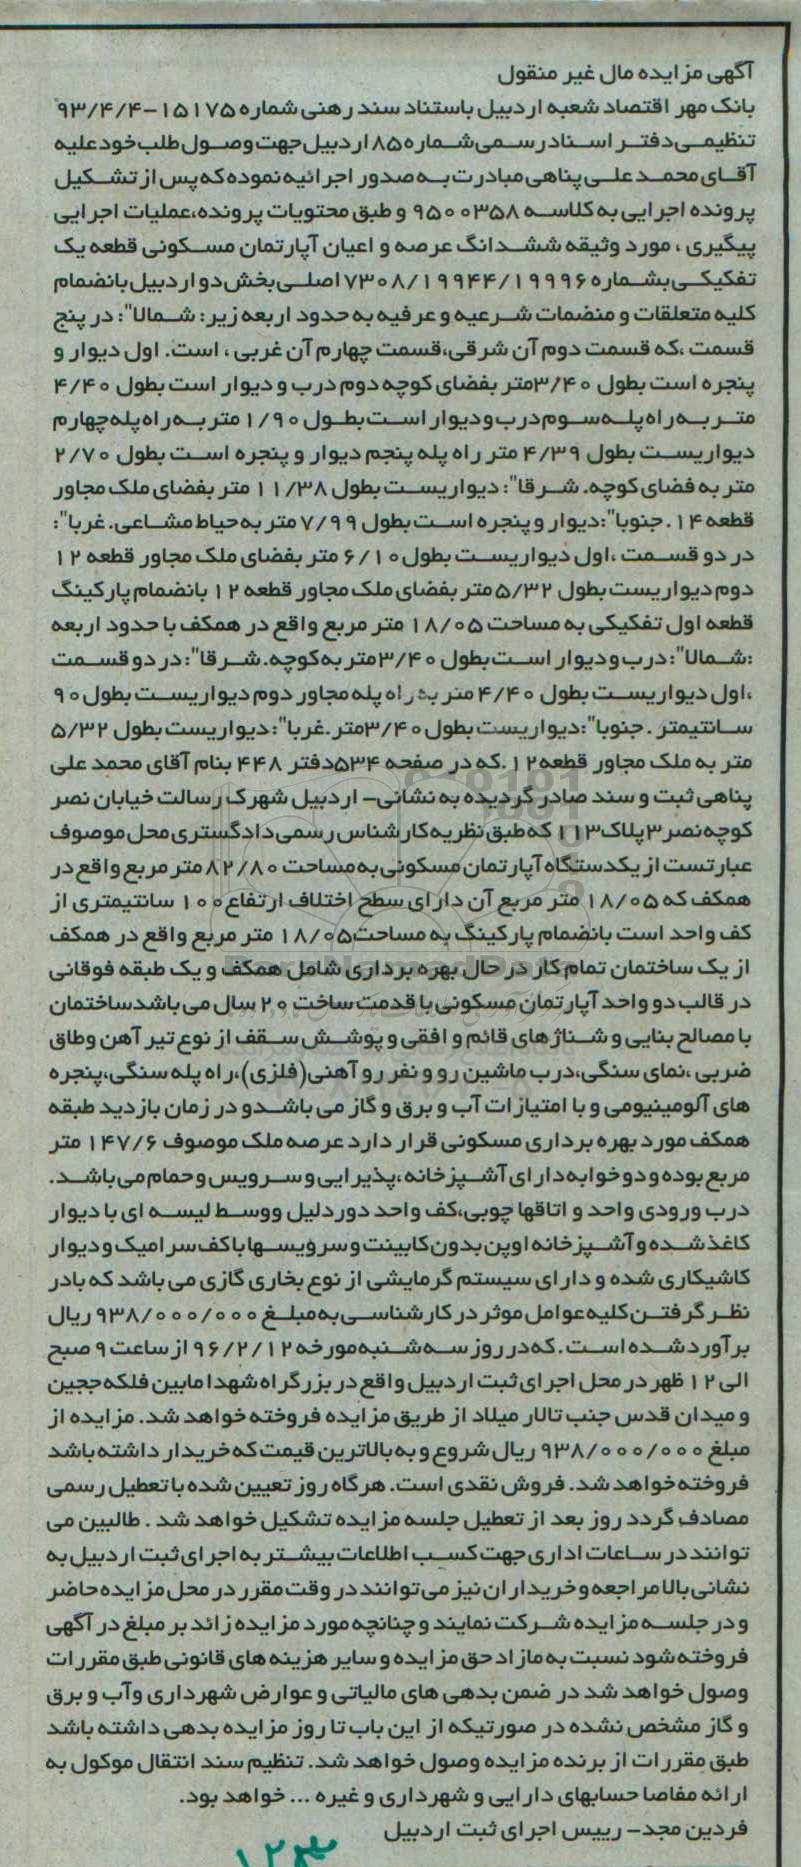 آگهی مزایده مال غیر منقول
بانک مهر اقتصاد شعبه اردبیل باستناد سند رهنی شماره ۱۵۱۷۵-۹۳/۴/۴
تنظیمی دفتر اسناد رسمی شماره ۸۵ اردبیل جهت وصول طلب خود علیه
آقای محمد علی پناهی مبادرت به صدور اجرائیه نموده که پس از تشکیل
پرونده اجرایی به کلاسه ۹۵۰۰۳۵۸ و طبق محتویات پرونده،عملیات اجرایی
پیگیری ، مورد وثیقه ششدانگ عرصه و اعیان آپارتمان مسکونی قطعه یک
تفکیکی بشماره ۷۳۰۸/۱۹۹۴۴/۱۹۹۹۶ اصلی بخش دو اردبیل بانضمام
کلیه متعلقات و منضمات شرعیه و عرفیه به حدود اربعه زیر: شمالا": در پنج
قسمت ،که قسمت دوم آن شرقی،قسمت چهارم آن غربی ، است. اول دیوار و
پنجره است بطول ۳/۴۰متر بفضای کوچه دوم درب و دیوار است بطول ۴/۴۰
متر به راه پله سوم درب و دیوار است بطول ۱/۹۰ متر به راه پله چهارم
دیواریست بطول ۴/۳۹ متر راه پله پنجم دیوار و پنجره است بطول ۲/۷۰
متر به فضای کوچه. شرقا": دیواریست بطول ۱۱/۳۸ متر بفضای ملک مجاور
قطعه ۱۴. جنوبا":دیوار و پنجره است بطول ۷/۹۹ متر به حیاط مشاعی. غربا":
در دو قسمت ،اول دیواریست بطول ۶/۱۰ متر بفضای ملک مجاور قطعه ۱۲
دوم دیواریست بطول ۵/۳۲ متر بفضای ملک مجاور قطعه ۱۲ بانضمام پارکینگ
قطعه اول تفکیکی به مساحت ۱۸/۰۵ متر مربع واقع در همکف با حدود اربعه
:شمالا": درب و دیوار است بطول ۳/۴۰متر به کوچه. شرقا": در دو قسمت
،اول دیواریست بطول ۴/۴۰ متر به راه پله مجاور دوم دیواریست بطول ۹۰
سانتیمتر . جنوبا":دیواریست بطول ۳/۴۰متر.غربا":دیواریست بطول ۵/۳۲
متر به ملک مجاور قطعه ۱۲ .که در صفحه ۵۳۴دفتر ۴۴۸ بنام آقای محمد علی
پناهی ثبت و سند صادر گردیده به نشانی- اردبیل شهرک رسالت خیابان نصر
کوچه نصر ۳ پلاک ۱۱۳ که طبق نظریه کارشناس رسمی دادگستری محل موصوف
عبارتست از یکدستگاه آپارتمان مسکونی به مساحت ۸۲/۸۰ متر مربع واقع در
همکف که ۱۸/۰۵ متر مربع آن دارای سطح اختلاف ارتفاع ۱۰۰ سانتیمتری از
کف واحد است بانضمام پارکینگ به مساحت ۱۸/۰۵ متر مربع واقع در همکف
از یک ساختمان تمام کار در حال بهره برداری شامل همکف و یک طبقه فوقانی
در قالب دو واحد آپارتمان مسکونی با قدمت ساخت ۲۰ سال می باشد ساختمان
با مصالح بنایی و شناژهای قائم و افقی و پوشش سقف از نوع تیر آهن وطاق
ضربی ،نمای سنگی،درب ماشین رو و نفر رو آهنی(فلزی)،راه پله سنگی،پنجره
های آلومینیومی و با امتیازات آب و برق و گاز می باشد و در زمان بازدید طبقه
همکف مورد بهره برداری مسکونی قرار دارد عرصه ملک موصوف ۱۴۷/۶ متر
مربع بوده و دو خوابه دارای آشپزخانه ،پذیرایی و سرویس و حمام می باشد.
درب ورودی واحد و اتاقها چوبی،کف واحد دوردلیل ووسط لیسه ای با دیوار
کاغذ شده و آشپزخانه اوپن بدون کابینت و سرویسها با کف سرامیک و دیوار
کاشیکاری شده و دارای سیستم گرمایشی از نوع بخاری گازی می باشد که با در
نظر گرفتن کلیه عوامل موثر در کارشناسی به مبلغ ۹۳۸/۰۰۰/۰۰۰ ریال
برآورد شده است. که در روز سه شنبه مورخه ۹۶/۲/۱۲ از ساعت ۹ صبح
الی ۱۲ ظهر در محل اجرای ثبت اردبیل واقع در بزرگراه شهدا مابین فلکه ججین
و میدان قدس جنب تالار میلاد از طریق مزایده فروخته خواهد شد. مزایده از
مبلغ ۹۳۸/۰۰۰/۰۰۰ ریال شروع و به بالاترین قیمت که خریدار داشته باشد
فروخته خواهد شد. فروش نقدی است. هرگاه روز تعیین شده با تعطیل رسمی
مصادف گردد روز بعد از تعطیل جلسه مزایده تشکیل خواهد شد . طالبین می
توانند در ساعات اداری جهت کسب اطلاعات بیشتر به اجرای ثبت اردبیل به
نشانی بالا مراجعه و خریداران نیز می توانند در وقت مقرر در محل مزایده حاضر
و در جلسه مزایده شرکت نمایند و چنانچه مورد مزایده زائد بر مبلغ در آگهی
فروخته شود نسبت به مازاد حق مزایده و سایر هزینه های قانونی طبق مقررات
وصول خواهد شد در ضمن بدهی های مالیاتی و عوارض شهرداری وآب و برق
و گاز مشخص نشده در صورتیکه از این باب تا روز مزایده بدهی داشته باشد
طبق مقررات از برنده مزایده وصول خواهد شد. تنظیم سند انتقال موکول به
ارائه مفاصا حسابهای دارایی و شهرداری و غیره ... خواهد بود.
فردین مجد- رییس اجرای ثبت اردبیل